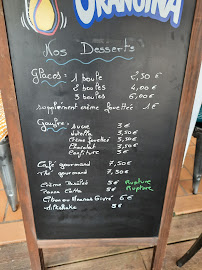 ORANGINA
Nos Desserts
Glaces : 1 boule 2,50 €
2 boules 4,00 €
3 boules 6,00 €
supplément crème fouettée 1 €
Gaufre : sucre 3 €
Nutella 3,50 €
Crème fouettée 3,50 €
Chocolat 3,50 €
Confiture 3 €
Café gourmand 7,50 €
Thé gourmand 7,50 €
Crème Brulée 5 € Rupture
Panna Cotta 5 € Rupture
Citron ou Ananas Givré 6 €
Milkshake 5 €